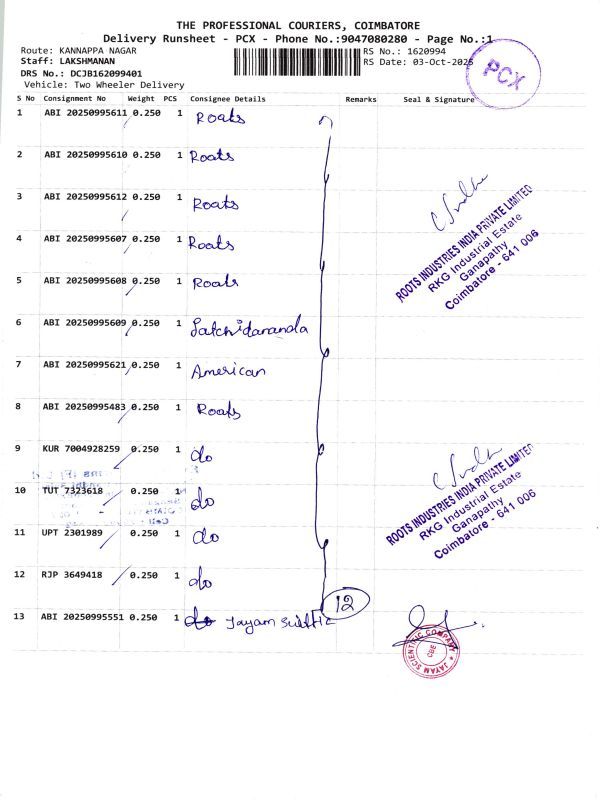 THE PROFESSIONAL COURIERS, COIMBATORE
Delivery Runsheet - PCX - Phone No.:9047080280 - Page No.:1
Route: KANNAPPA NAGAR
RS No.: 1620994
Staff: LAKSHMANAN
RS Date: 03-Oct-2025
DRS No.: DCJB162099401
Vehicle: Two Wheeler Delivery
PCX
S No Consignment No Weight PCS Consignee Details Remarks Seal & Signature
1 ABI 20250995611 0.250 1 Roats
2 ABI 20250995610 0.250 1 Roats
3 ABI 20250995612 0.250 1 Roats
4 ABI 20250995607 0.250 1 Roats
ROOTS INDUSTRIES INDIA PRIVATE LIMITED
RKG Industrial Estate
Ganapathy
Coimbatore - 641 006
5 ABI 20250995608 0.250 1 Roats
6 ABI 20250995609 0.250 1 Satchidananda
7 ABI 20250995621 0.250 1 American
8 ABI 20250995483 0.250 1 Roats
9 KUR 7004928259 0.250 1 do
10 TUT 7323618 0.250 1 do
ROOTS INDUSTRIES INDIA PRIVATE LIMITED
RKG Industrial Estate
Ganapathy
Coimbatore - 641 006
11 UPT 2301989 0.250 1 do
12 RJP 3649418 0.250 1 do
12
13 ABI 20250995551 0.250 1 do Jayam
JAYAM SCIENTIFIC COMPANY
CBE